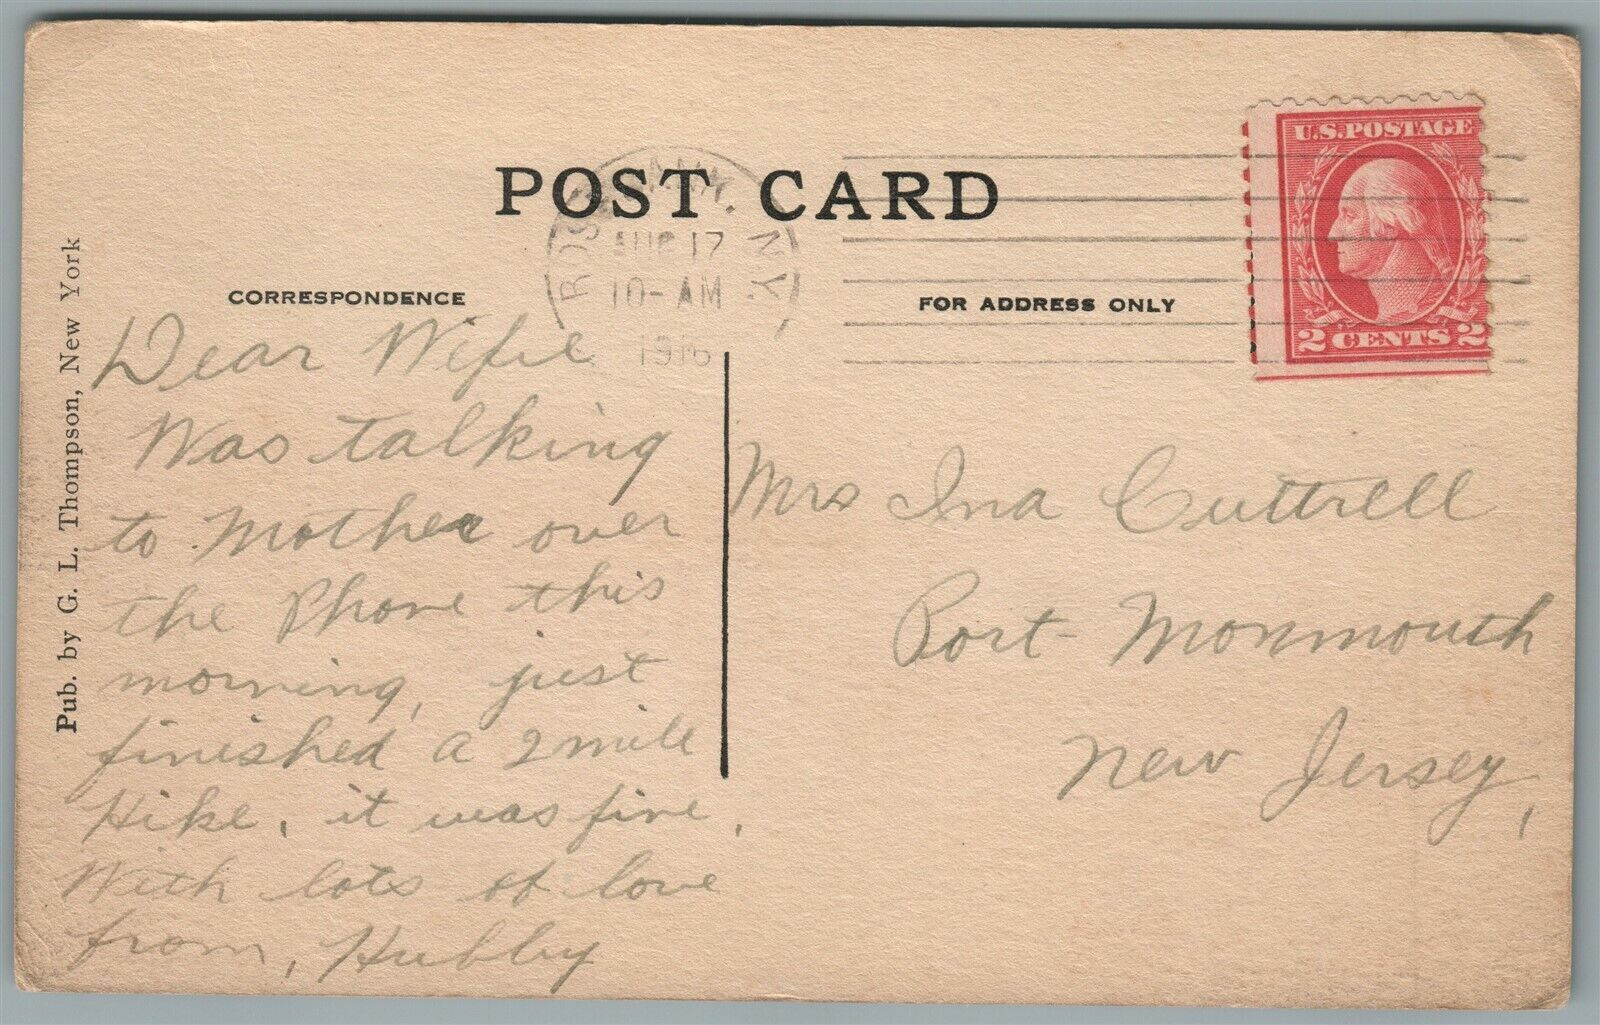 POST CARD
AUG 17
10-AM
1916
N.Y.
U.S. POSTAGE
2 CENTS 2
CORRESPONDENCE
FOR ADDRESS ONLY
Pub. by G. L. Thompson, New York
Dear Wifie
Was talking
to Mother over
the Phone this
morning, just
finished a 2 mile
Hike, it was fine,
With lots of love
from, Hubby
Mrs Ina Cuttrell
Port Monmouth
New Jersey,